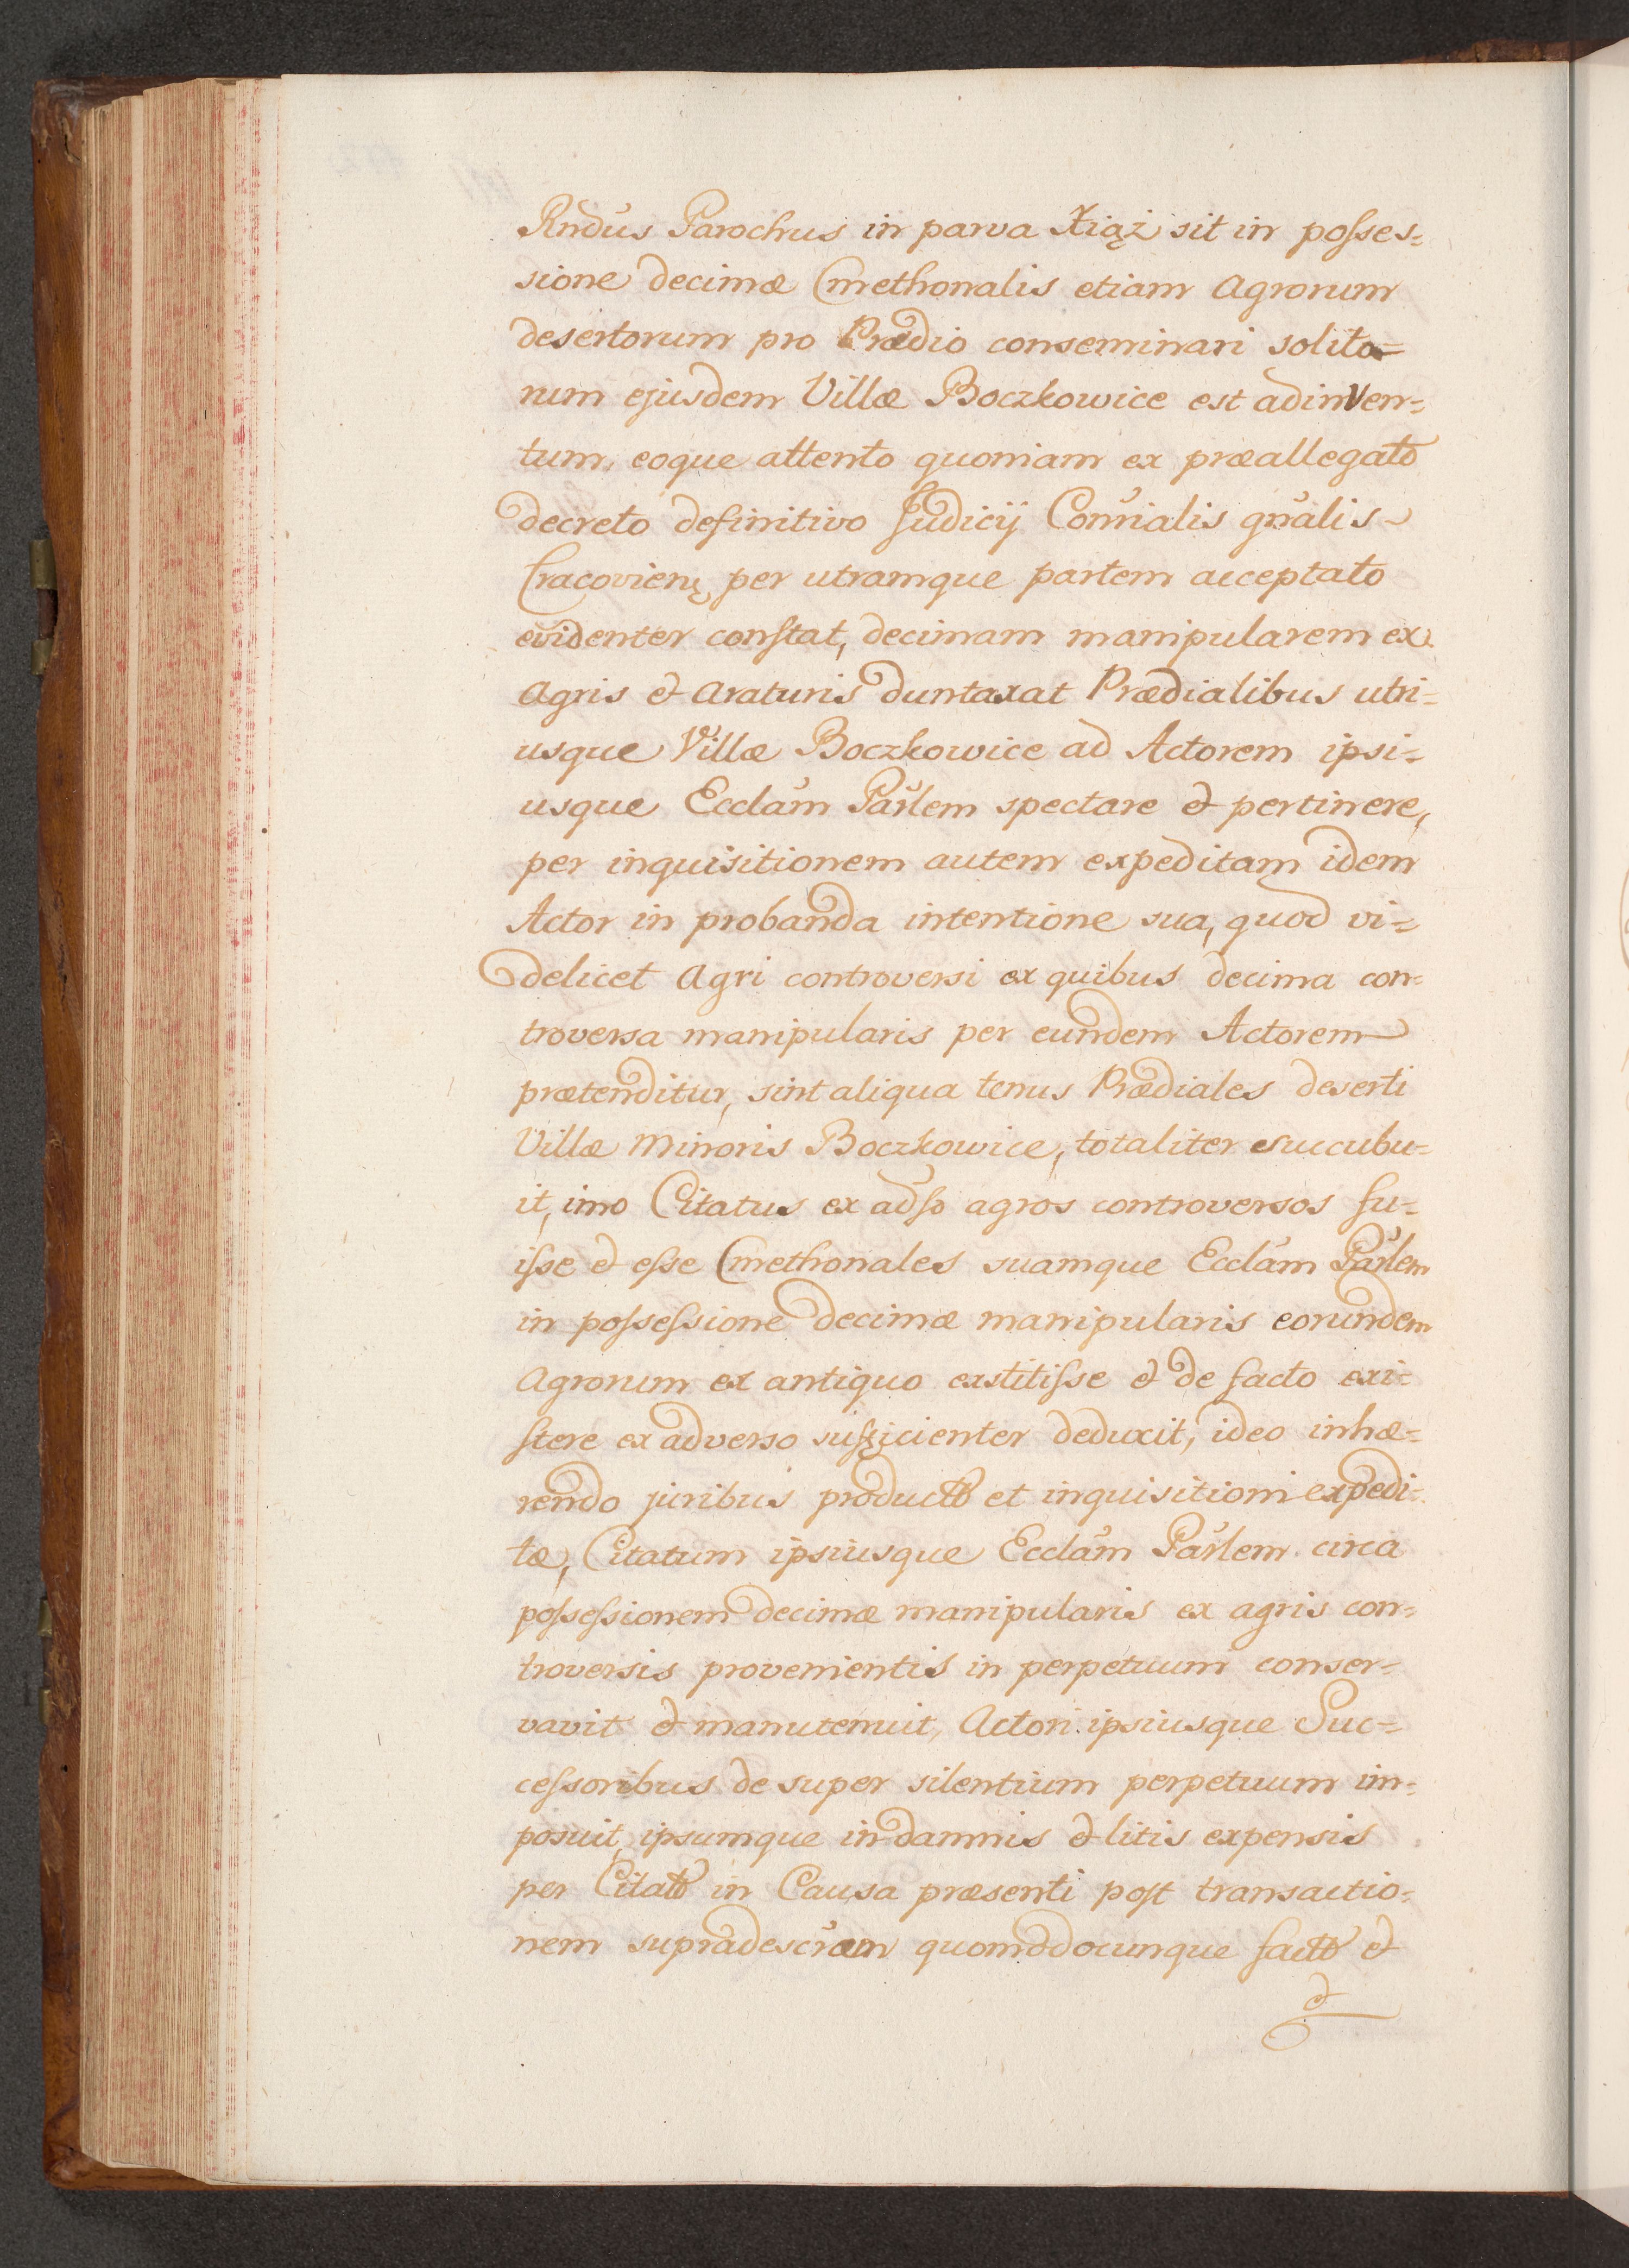 Rndus Parochus in parva Xiąż sit in posses=
sione decimæ Cmethonalis etiam Agrorum
desertorum pro Prædio conseminari solito=
rum ejusdem Villæ Boczkowice est adinven=
tum, eoque attento quoniam ex præallegato
decreto definitivo Judicij Conñialis gñalis
Cracovienę per utramque partem acceptato
evidenter constat, decimam manipularem ex
Agris et Araturis duntaxat Prædialibus utri=
usque Villæ Boczkowice ad Actorem ipsi=
usque Ecclam Parlem spectare et pertinere,
per inquisitionem autem expeditam idem
Actor in probanda intentione sua, quod vi=
delicet Agri controversi ex quibus decima con=
troversa manipularis per eundem Actorem
prætenditur, sint aliqua tenus Prædiales deserti
Villæ Minoris Boczkowice, totaliter succubu=
it, imo Citatus ex adso agros controversos fu=
isse et esse Cmethonales suamque Ecclam Parlem
in possessione decimæ manipularis eorundem
Agrorum ex antiquo exstitisse et de facto exi=
stere ex adverso sufficienter deduxit, ideo inhæ=
rendo juribus product et inquisitioni expedi=
tæ, Citatum ipsiusque Ecclam Parlem circa
possessionem decimæ manipularis ex agris con=
troversis provenientis in perpetuum conser=
vavit et manutenuit, Actori ipsiusque Suc=
cessoribus de super silentium perpetuum im=
posuit, ipsumque in damnis et litis expensis
per Citat in Causa præsenti post transactio=
nem supradescram quomodocunque fact et
et